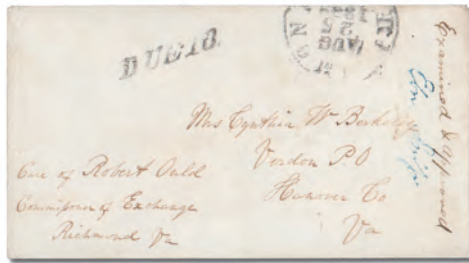 DUE 10.
AUG
Mrs Cynthia W Berkeley
Verdon P.O
Hanover Co
Va
Care of Robert Ould
Commissioner of Exchange
Richmond Va
Examined & approved